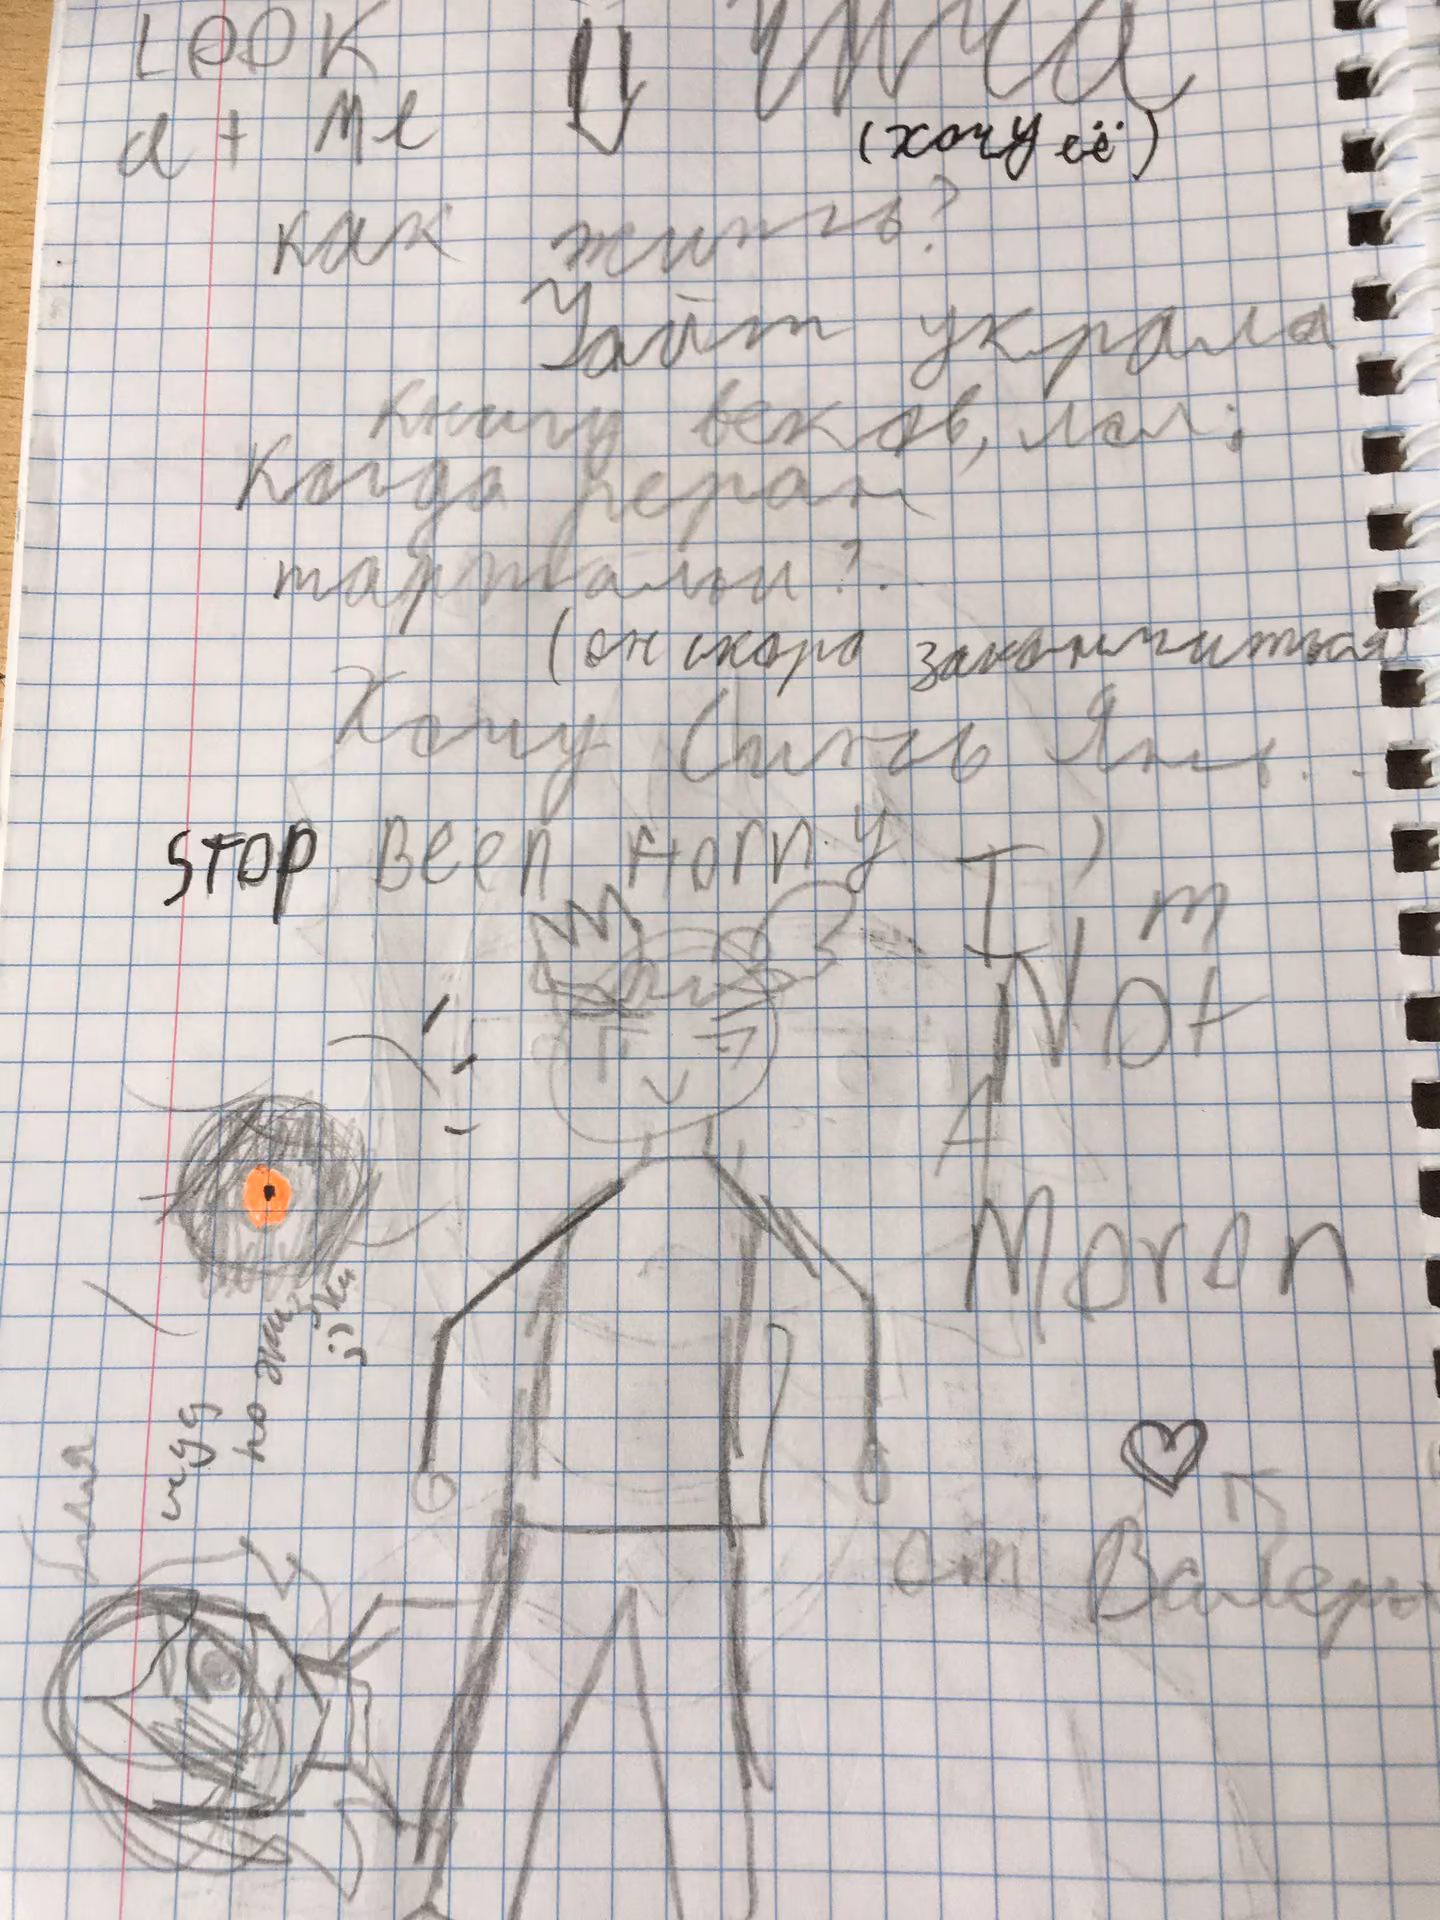 LOOK
at Me
(хочу её)
как жить?
Уайт украла
книгу веков, лол;
Когда реран
тартальи?..
(он скоро закончиться)
Хочу Сить Янь...
STOP Been Horny
I'm
Not
A
Moron
но жизу
от Валеры